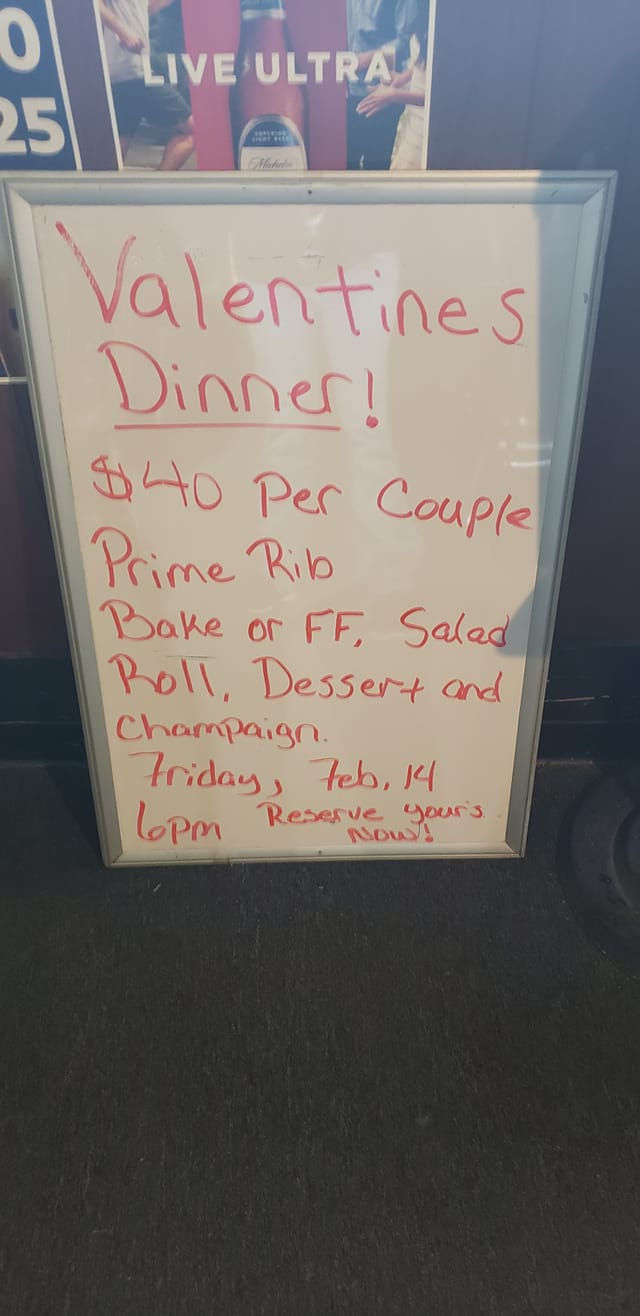 0
25
LIVE ULTRA
SUPERIOR
LIGHT BEER
Valentines
Dinner!
$40 Per Couple
Prime Rib
Bake or FF, Salad
Roll, Dessert and
Champaign.
Friday, Feb. 14
6pm Reserve your's
NOW!